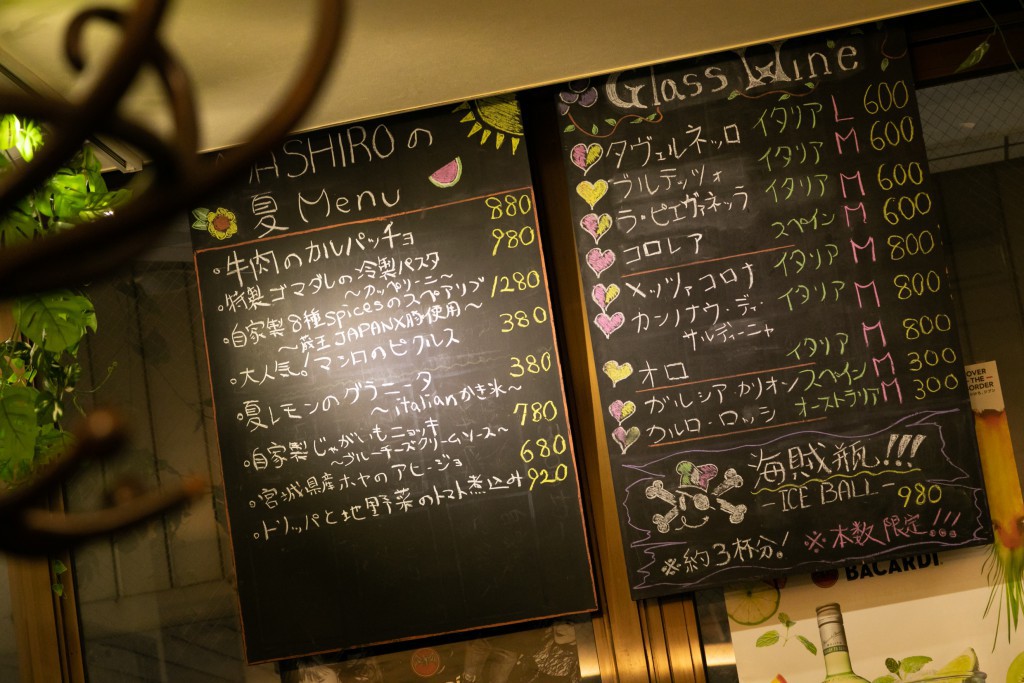 SHIROの
夏 Menu
牛肉のカルパッチョ 880
特製ゴマダレの冷製パスタ 980
～カッペリーニ～
自家製8種spicesのスペアリブ 1280
～蔵王JAPANX豚使用～
大人気！マンロのピクルス 380
夏レモンのグラニータ 380
～italianかき氷～
自家製じゃがいもニョッキ 780
～ブルーチーズクリームソース～
宮城県産ホヤのアヒージョ 680
トリッパと地野菜のトマト煮込み 920
Glass Wine
タヴェルネッロ イタリア L 600
ブルテッツォ イタリア M 600
ラ・ピエヴァネッラ イタリア M 600
コロレア スペイン M 600
メッツァコロナ イタリア M 800
カンノナウ・ディ・ イタリア M 800
サルディーニャ
オロ イタリア M 800
ガルシア・カリオン スペイン M 300
カルロ・ロッシ オーストラリア M 300
海賊瓶!!!
－ICE BALL－ 980
※約3杯分！ ※本数限定!!!
BACARDI
OVER
THE
ORDER